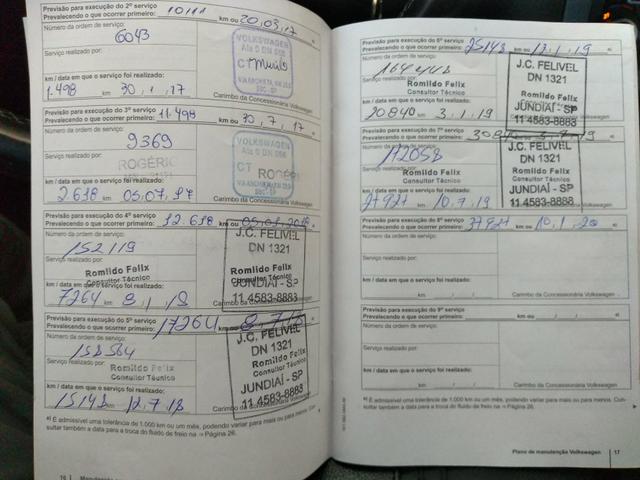 Previsão para execução do 2º serviço
Prevalecendo o que ocorrer primeiro: 10111 km ou 20.03.17 a)
Número da ordem de serviço:
6043
Serviço realizado por:
VOLKSWAGEN
km / data em que o serviço foi realizado:
1.498 km 30 / 1 / 17
Carimbo da Concessionária Volkswagen
Previsão para execução do 3º serviço
Prevalecendo o que ocorrer primeiro: 11.498 km ou 30, 7, 17 a)
Número da ordem de serviço:
9369
Serviço realizado por:
ROGÉRIO
VOLKSWAGEN
CT ROGÉRIO
km / data em que o serviço foi realizado:
2638 km 05.07.17
Carimbo da Concessionária Volkswagen
Previsão para execução do 4º serviço
Prevalecendo o que ocorrer primeiro: 12.638 km ou 05.01.2018
Número da ordem de serviço:
152119
Serviço realizado por:
Romildo Felix
Consultor Técnico
J.C. FELIVEL
DN 1321
Romildo Felix
Consultor Técnico
JUNDIAÍ - SP
11 4583-8883
km / data em que o serviço foi realizado:
7264 km 8 / 1 / 18
Previsão para execução do 5º serviço
Prevalecendo o que ocorrer primeiro: 17264 km ou 8, 7, 18
Número da ordem de serviço:
158564
Serviço realizado por:
Romildo Felix
Consultor Técnico
J.C. FELIVEL
DN 1321
Romildo Felix
Consultor Técnico
JUNDIAÍ - SP
11 4583-8883
km / data em que o serviço foi realizado:
15148 km 12.7.18
Carimbo da Concessionária Volkswagen
a) É admissível uma tolerância de 1.000 km ou um mês, podendo variar para mais ou para menos. Con-
sultar também a data para a troca do fluido de freio na ⇒ Página 26.
16
Previsão para execução do 6º serviço
Prevalecendo o que ocorrer primeiro: 25148 km ou 12, 1, 19 a)
Número da ordem de serviço:
Serviço realizado por:
Romildo Felix
Consultor Técnico
J.C. FELIVEL
DN 1321
JUNDIAÍ - SP
11 4583-8883
km / data em que o serviço foi realizado:
20840 km 3.1.19
Previsão para execução do 7º serviço
Prevalecendo o que ocorrer primeiro: 30840 km ou 3.7.19 a)
Número da ordem de serviço:
112058
Serviço realizado por:
Romildo Felix
Consultor Técnico
J.C. FELIVEL
DN 1321
JUNDIAÍ - SP
11 4583-8883
km / data em que o serviço foi realizado:
27927 km 10.7.19
Previsão para execução do 8º serviço
Prevalecendo o que ocorrer primeiro: 37927 km ou 10, 1, 20 a)
Número da ordem de serviço:
Serviço realizado por:
km / data em que o serviço foi realizado:
km / /
Carimbo da Concessionária Volkswagen
Previsão para execução do 9º serviço
Prevalecendo o que ocorrer primeiro: km ou / / a)
Número da ordem de serviço:
Serviço realizado por:
km / data em que o serviço foi realizado:
km / /
Carimbo da Concessionária Volkswagen
a) É admissível uma tolerância de 1.000 km ou um mês, podendo variar para mais ou para menos. Con-
sultar também a data para a troca do fluido de freio na ⇒ Página 26.
Plano de manutenção Volkswagen 17